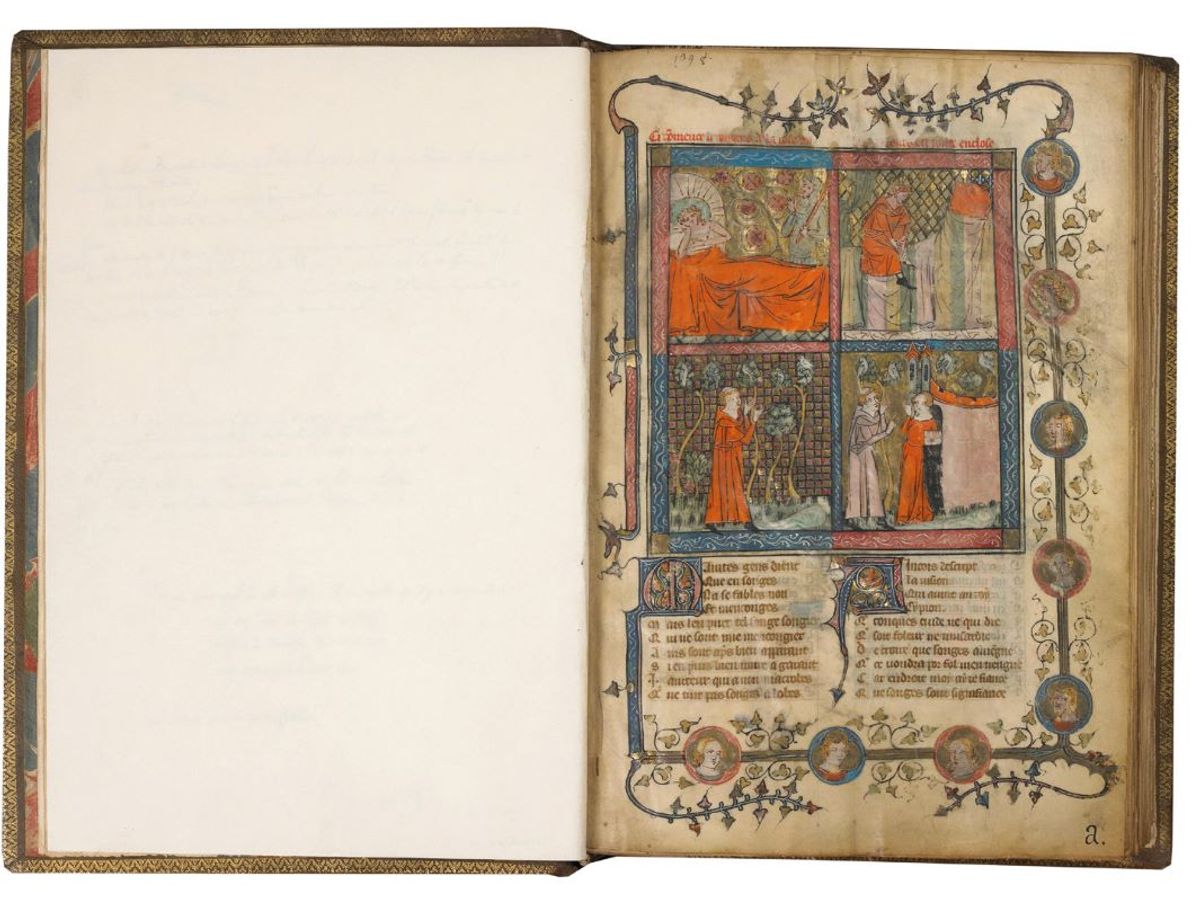 Ci comence le romans
toute enclose
Maintes gens dient
Que en songes
Na se fables non
Et menconges
Mais len puet tel songe songier
Qui ne sont mie mencongier
Ains sont aps bien apparant
Si en puis bien traire a garant
J. aucteur qui a non macrobes
Q ne tint pas songes a lobes
Aincois descript
la vision
Qui avint au roy
Cypion
Q conques cuide ne qui die
Q soit foleur ne musardie
De croire que songes aviegne
Q ce voudra por fol men tiengne
Car endroit moy ay ie fiance
Que songes sont signifiance
a.